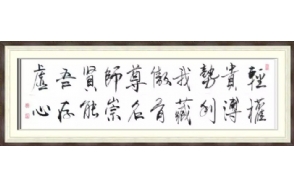 輕權
貴薄
勢利
我藏
傲骨
尊名
師崇
賢能
吾存
虛心